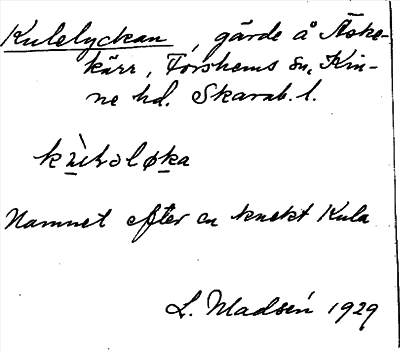 Kulelyckan, gärde å Äske-
kärr, Forshems sn, Kin-
ne hd. Skarab. l.
Namnet efter en knekt Kula
L. Madsén 1929